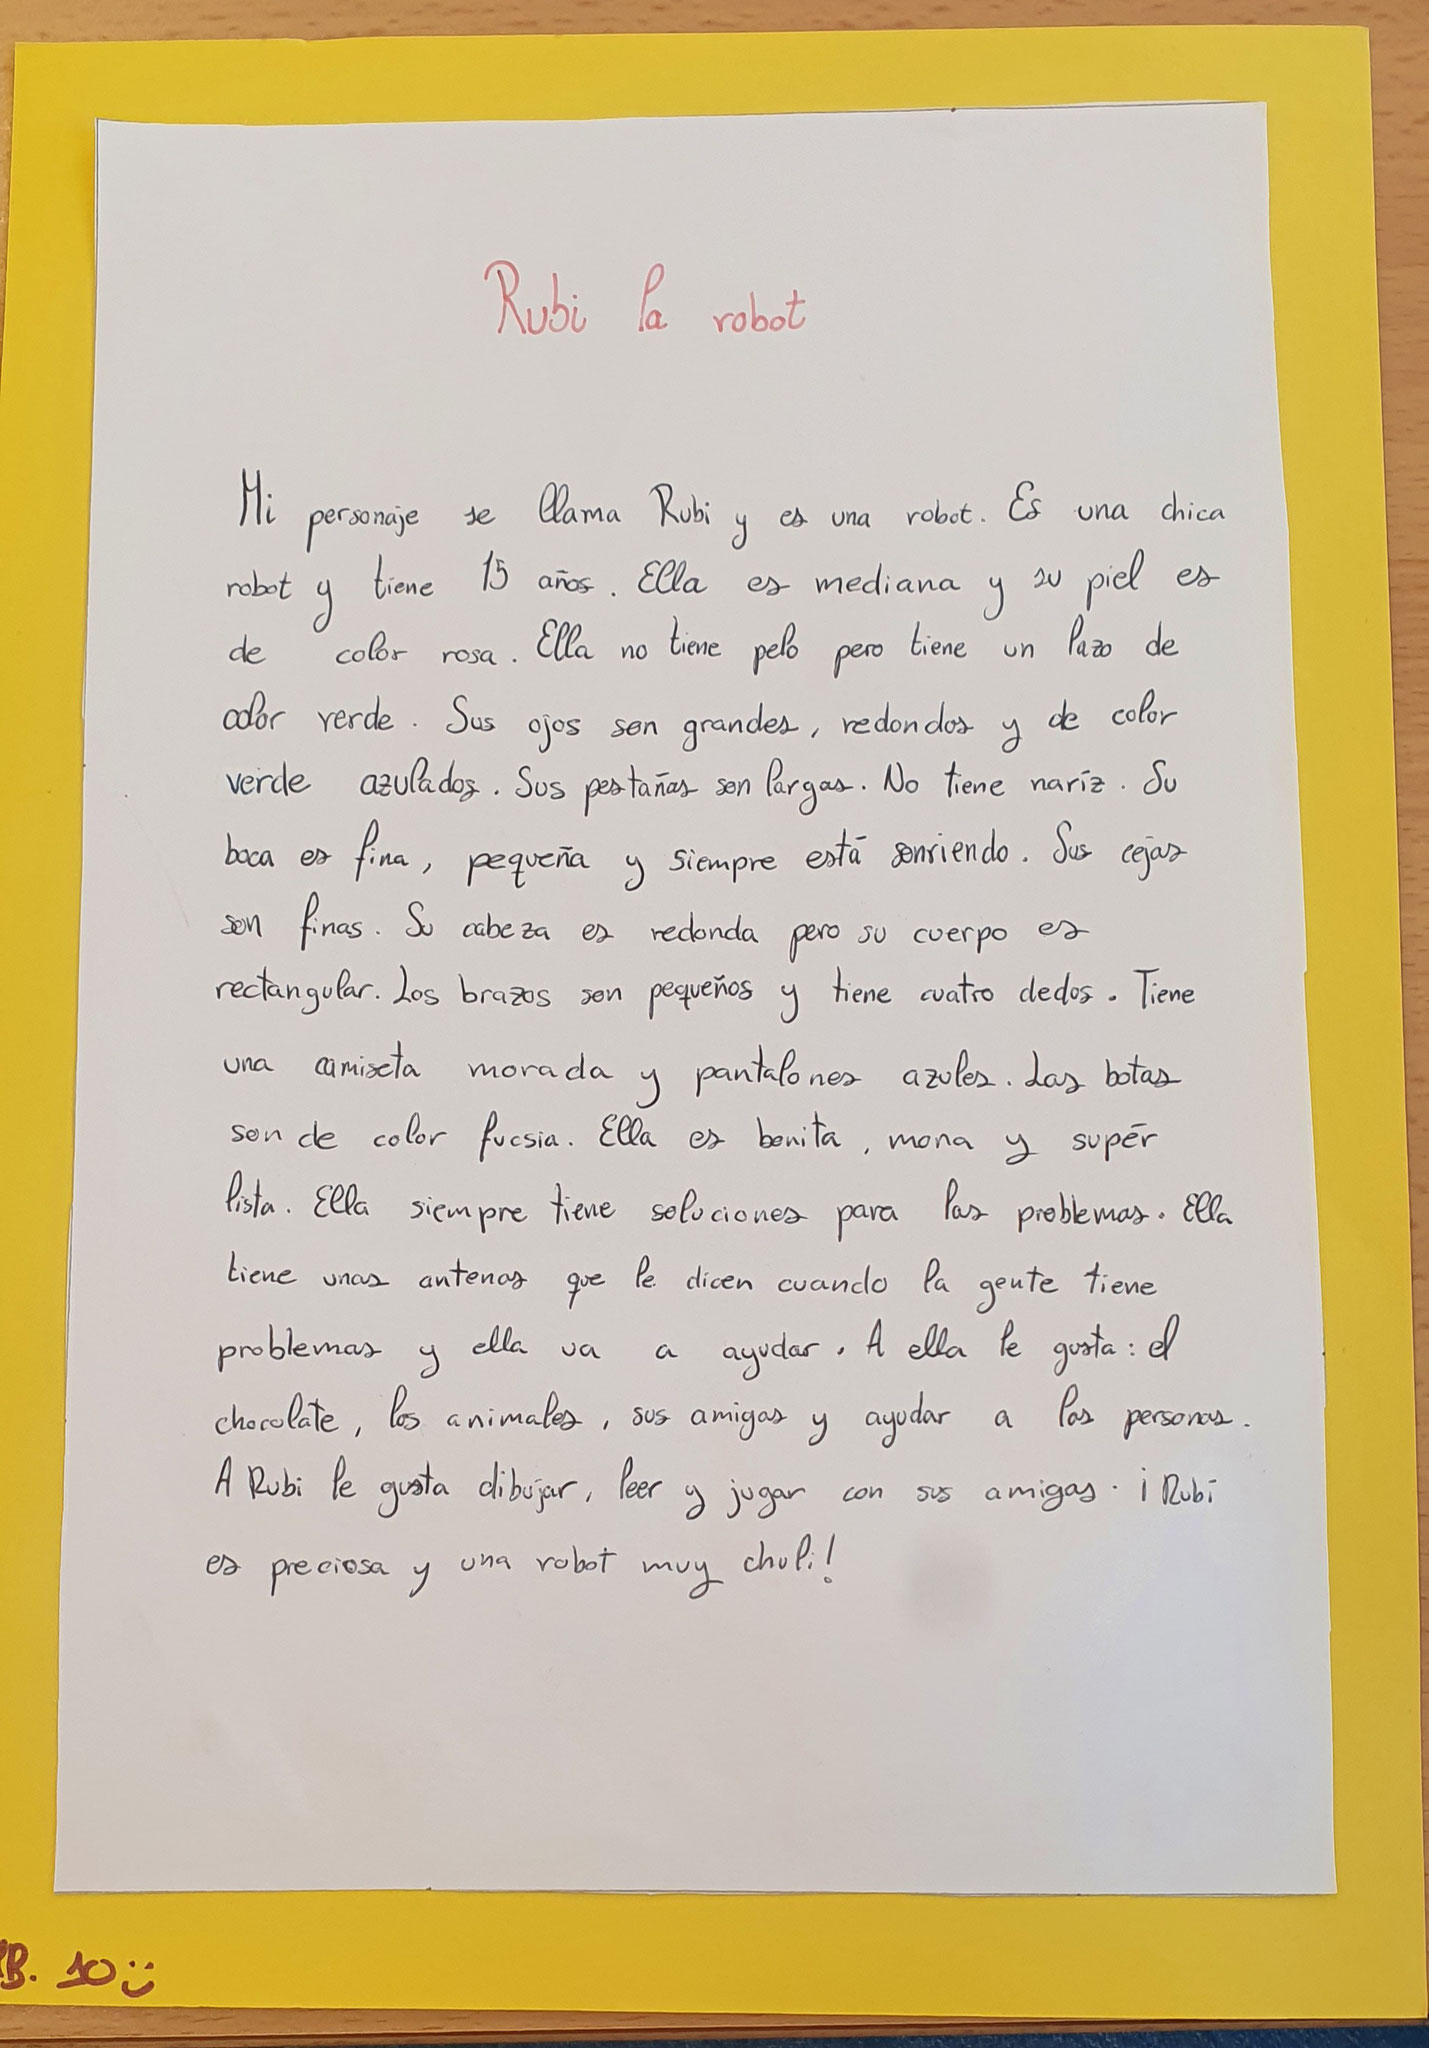 Rubi la robot
Mi personaje se llama Rubi y es una robot. Es una chica
robot y tiene 15 años. Ella es mediana y su piel es
de color rosa. Ella no tiene pelo pero tiene un lazo de
color verde. Sus ojos son grandes, redondos y de color
verde azulados. Sus pestañas son largas. No tiene naríz. Su
boca es fina, pequeña y siempre está sonriendo. Sus cejas
son finas. Su cabeza es redonda pero su cuerpo es
rectangular. Los brazos son pequeños y tiene cuatro dedos. Tiene
una camiseta morada y pantalones azules. Las botas
son de color fucsia. Ella es bonita, mona y supér
lista. Ella siempre tiene soluciones para las problemas. Ella
tiene unas antenas que le dicen cuando la gente tiene
problemas y ella va a ayudar. A ella le gusta: el
chocolate, los animales, sus amigas y ayudar a las personas.
A Rubi le gusta dibujar, leer y jugar con sus amigas. ¡Rubí
es preciosa y una robot muy chuli!
B. 10